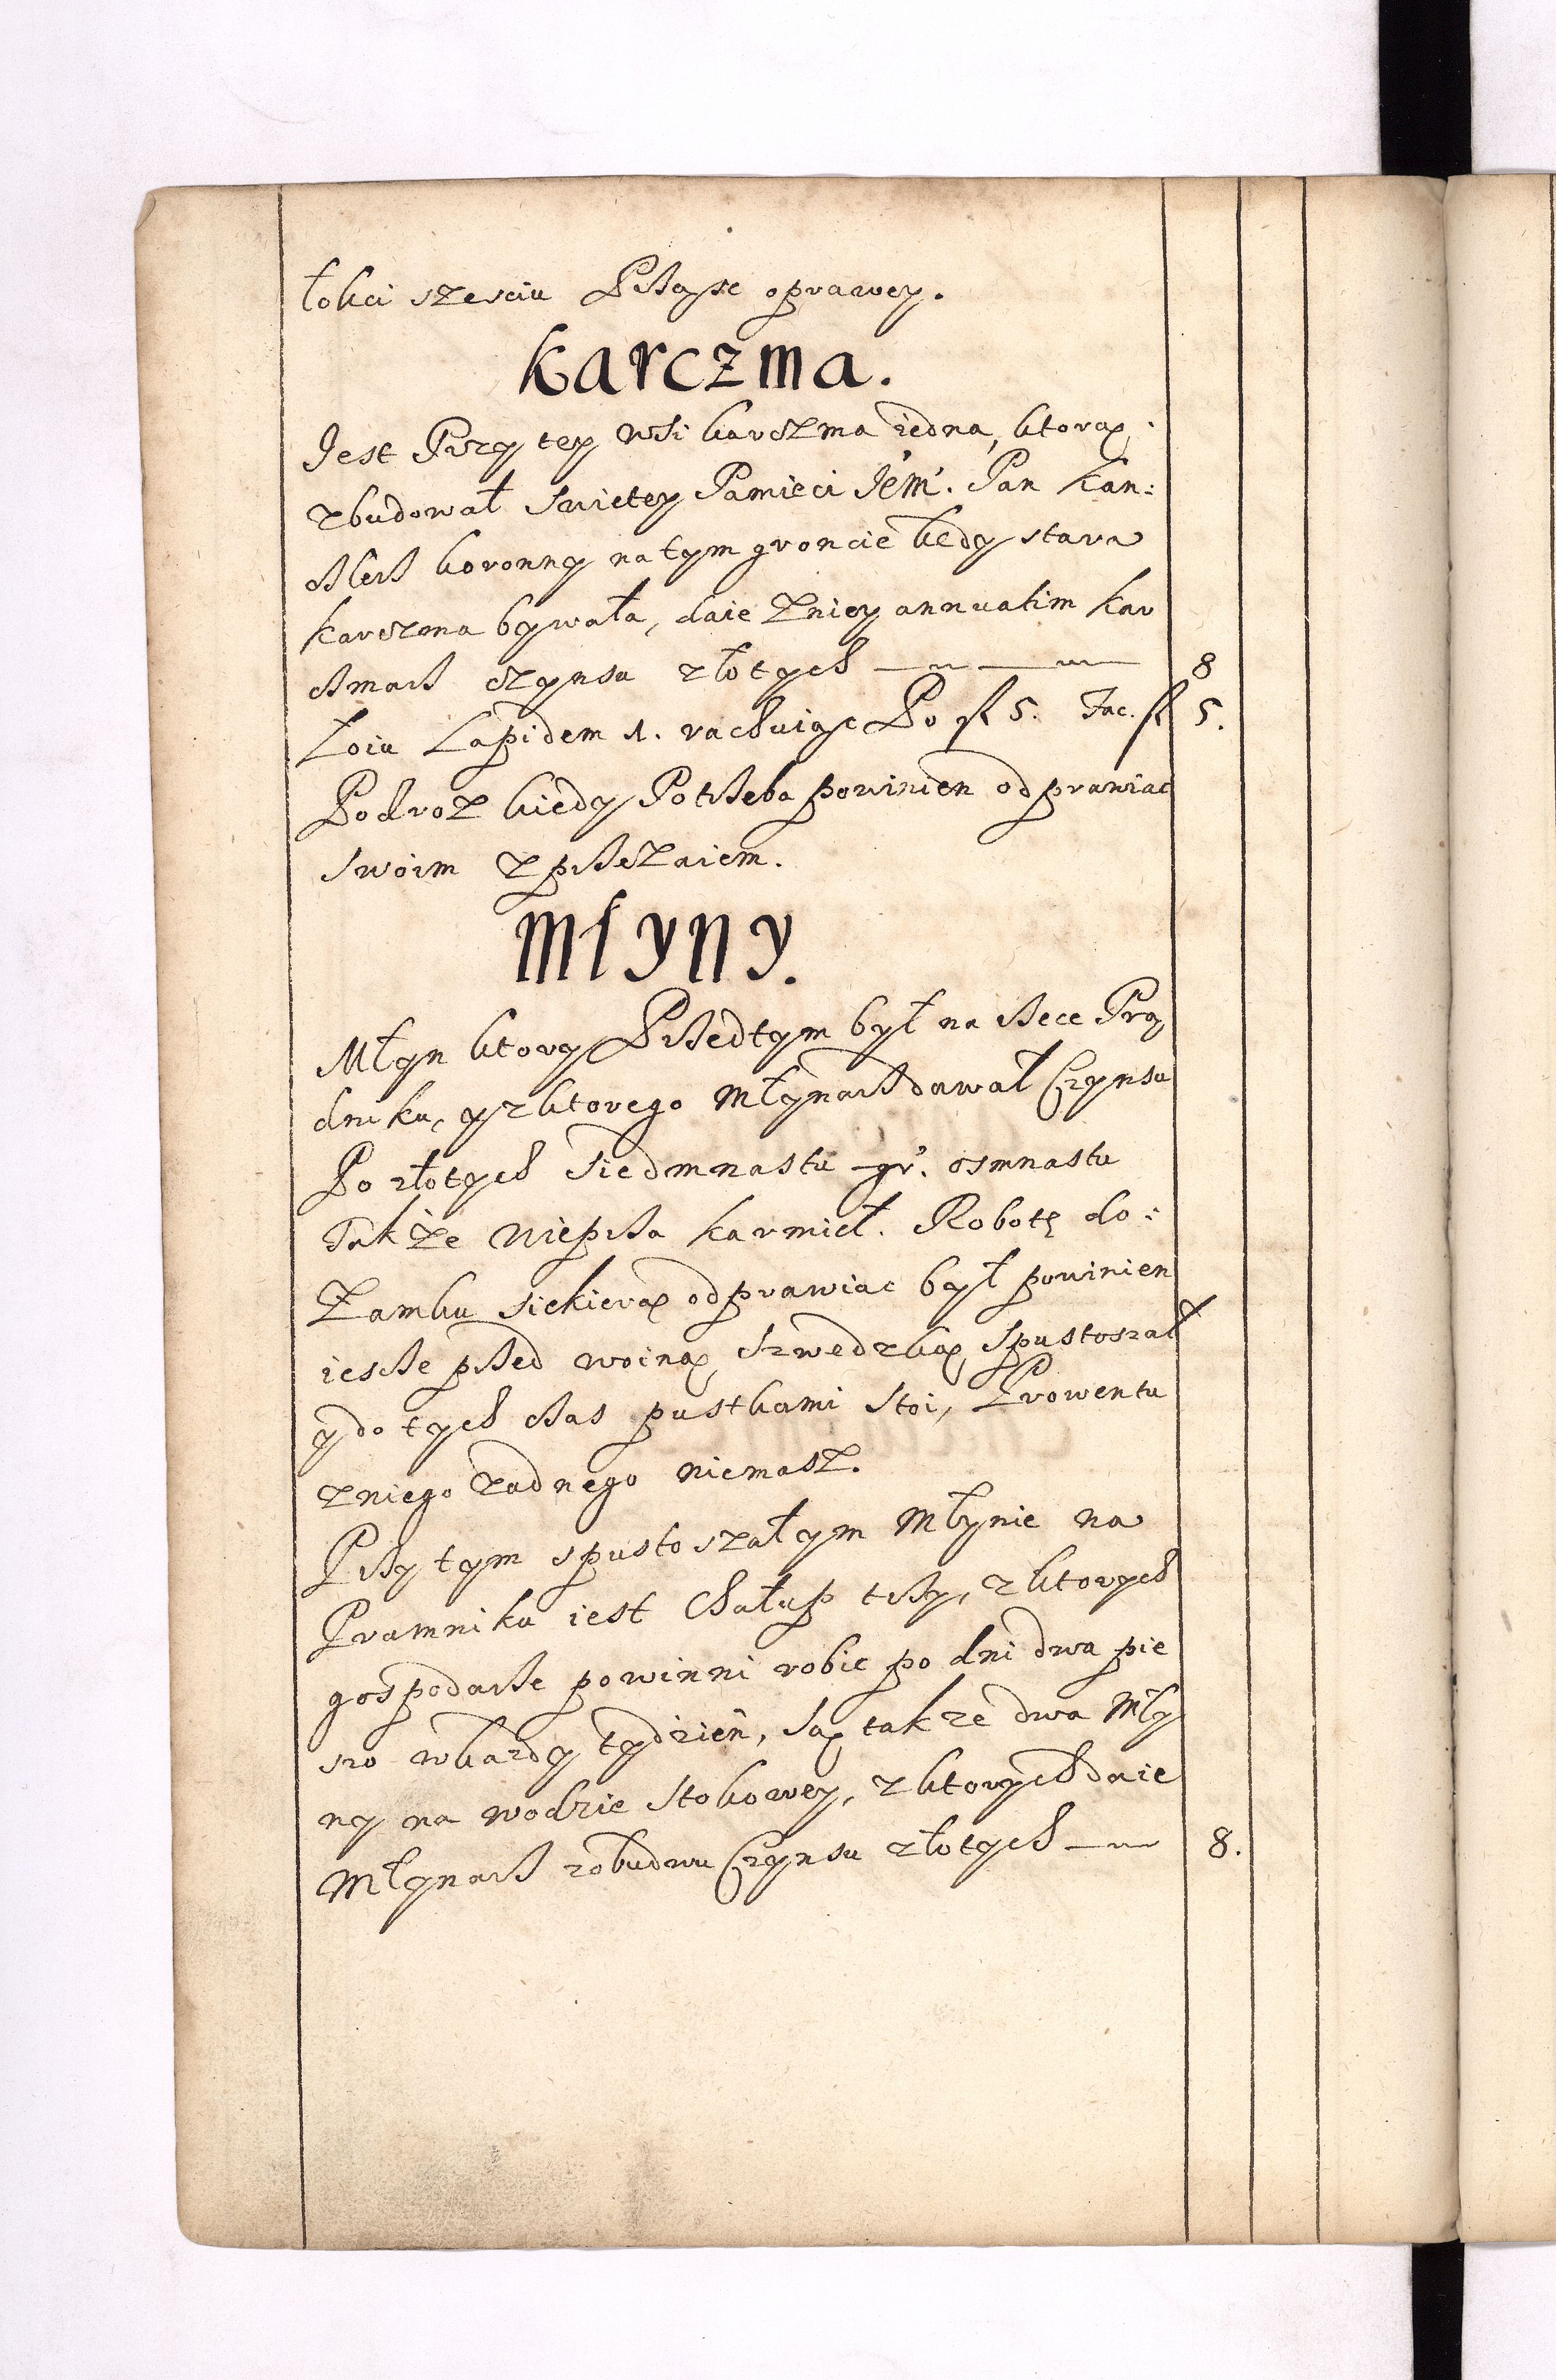 łokci szesciu Przęse oprawey.
Karczma.
Jest Przy tey wsi karczma iedna, ktorą.
zbudował swietey Pamieci Jem. Pan Kan:
clerz koronny na tym groncie kędy stara
karczma bywała, daie zniey annuatim kar
czmarz czynsu złotych 8
Łoiu Lapidem 1. rachuiąc Po fl 5. Fac. fl 5.
Podroz kiedy Potrzeba powinien odprawiac
swoim zprzezaiem.
Młyny.
Młyn ktory Przedtym był na rzece Prą
dniku, y zktorego Młynarz dawał Czynsu
Po złotych siedmnastu gr. osmnastu
Także Wieprza karmieł. Robotę do:
Zamku siekierą odprawiac był powinien
ieszcze przed woiną Szwedzką spustoszał
y do tych czas pustkami stoi, Prowentu
zniego zadnego niemasz.
Przy tym spustoszałym Młynie na
Prumniku iest Chałup trzy, zktorych
gospodarze powinni robic po dni dwa pie
szo wkazdy tydzien, Są takze dwa Mły
ny na wodzie stokowey, zktorych daie
Młynarz zobudwu Czynsu złotych 8.